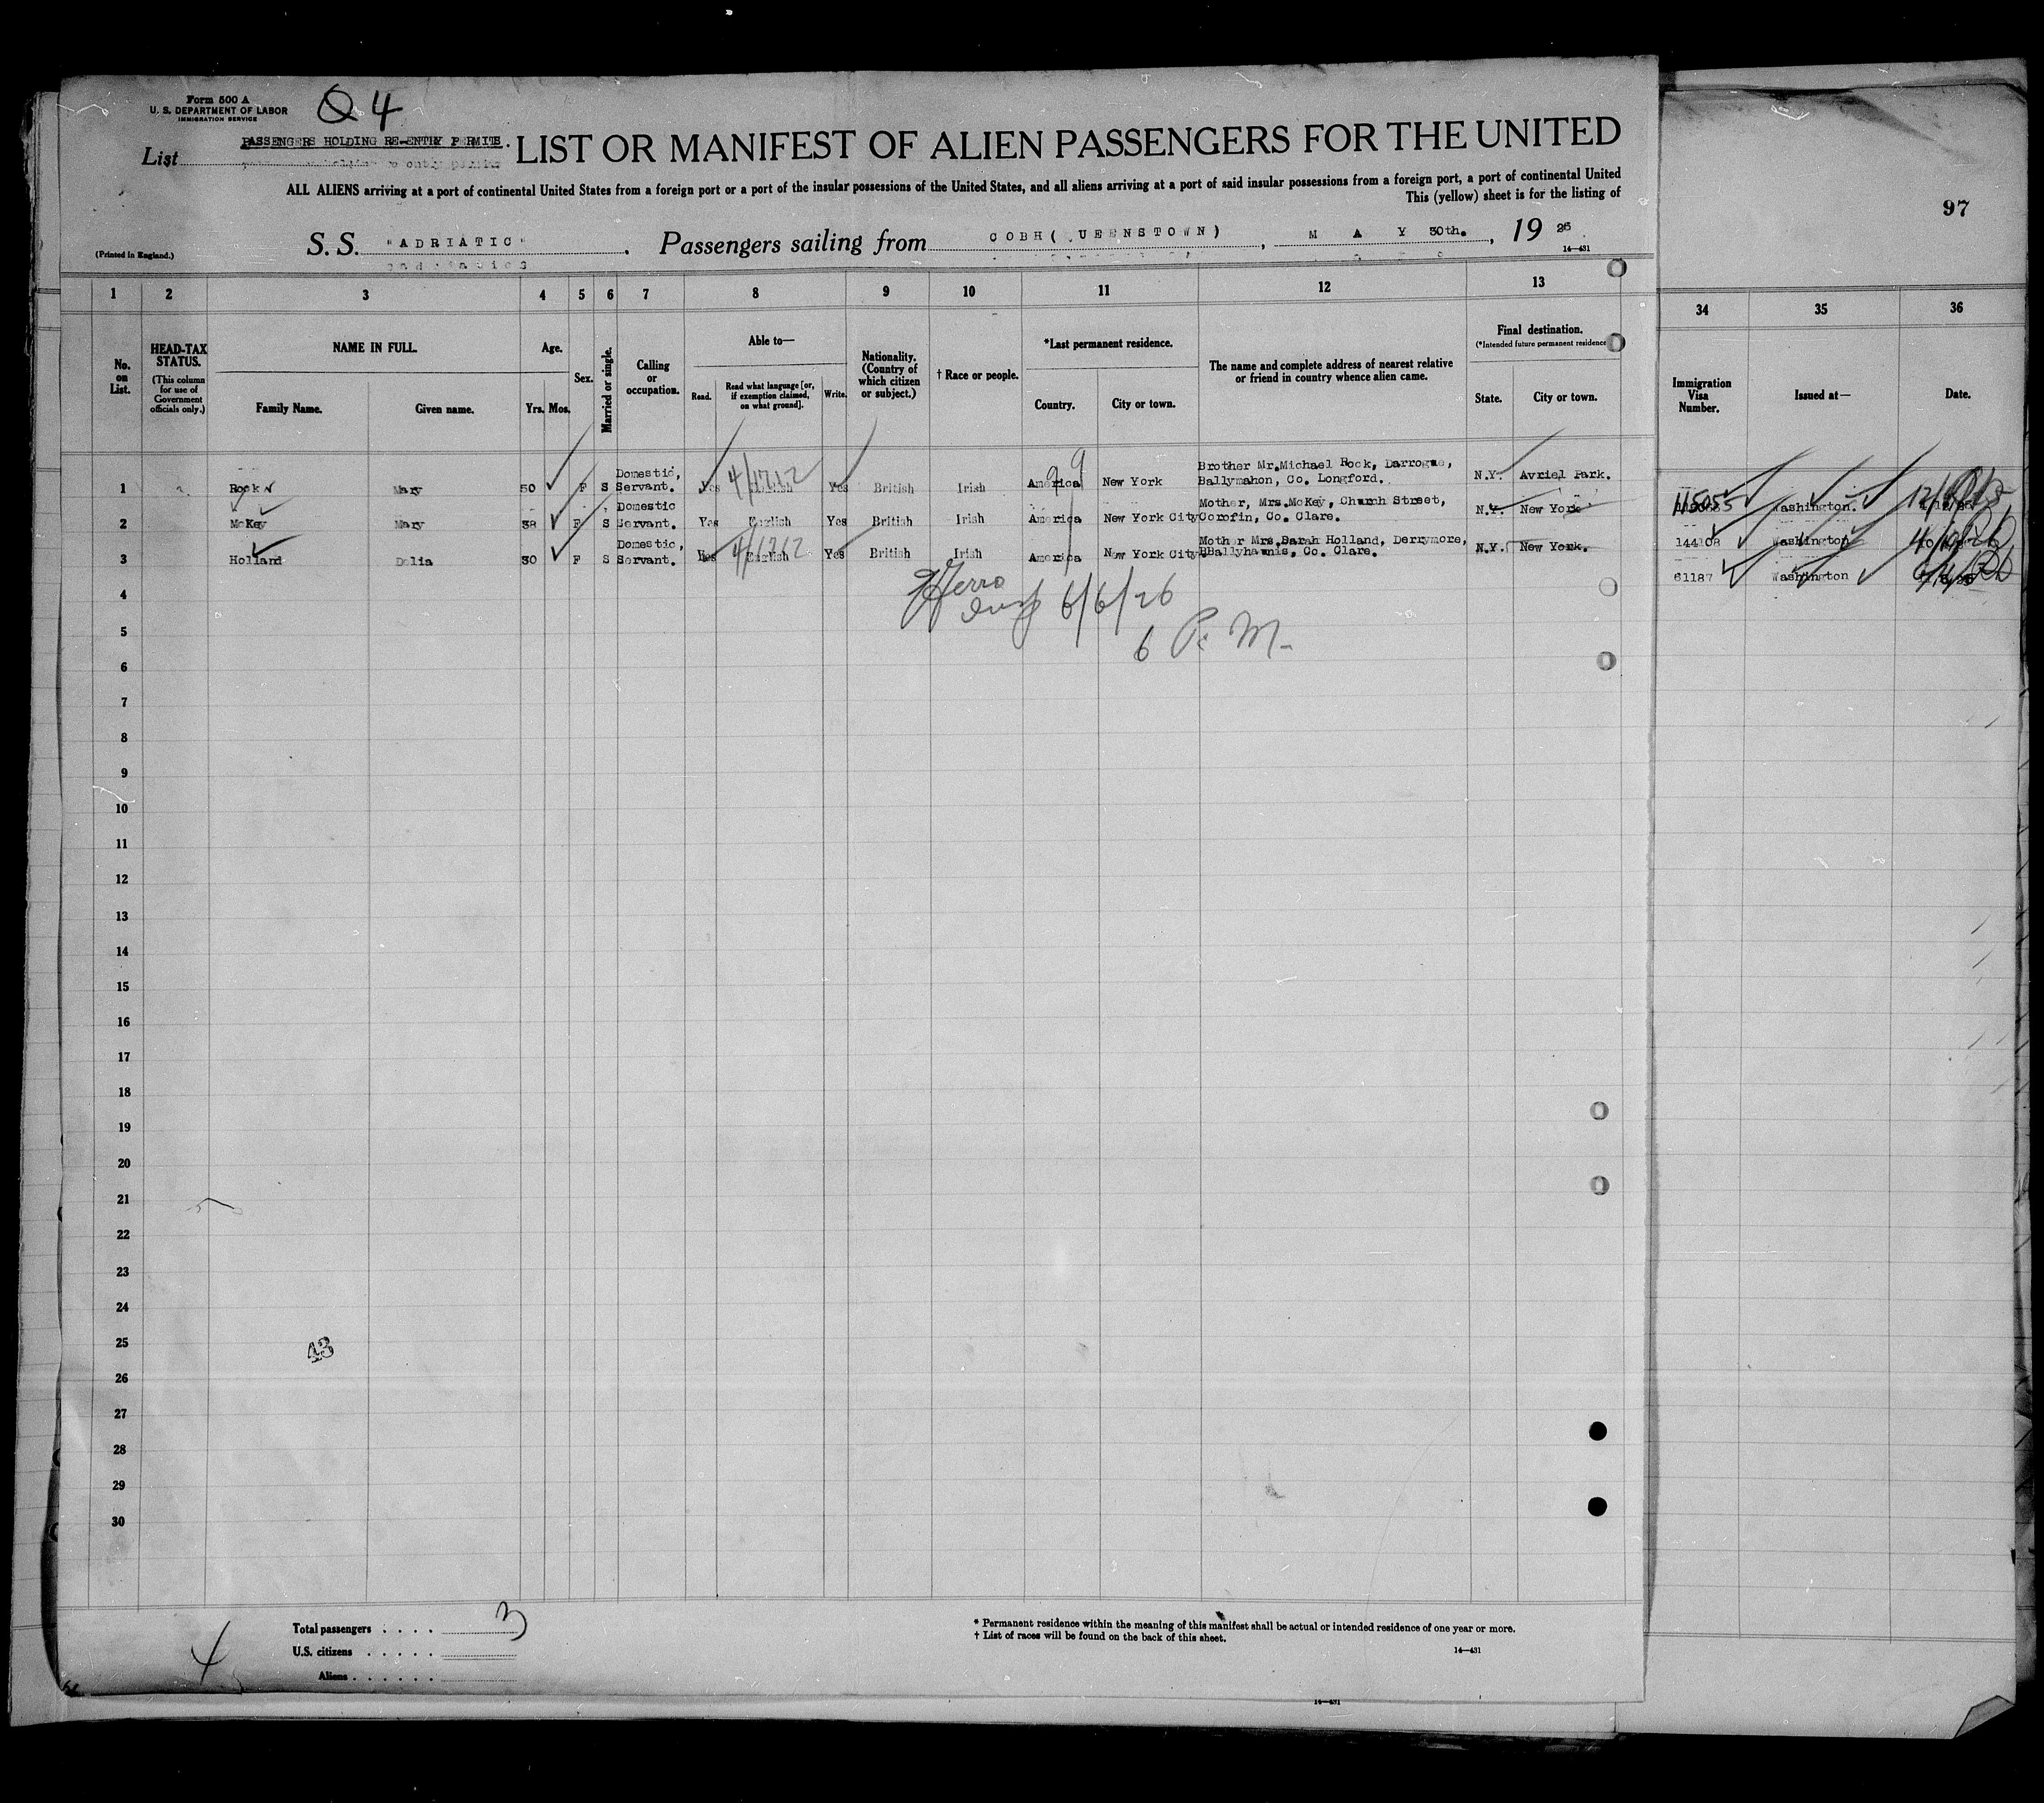 Form 500 A
U. S. DEPARTMENT OF LABOR
IMMIGRATION SERVICE
4
PASSENGERS HOLDING RE-ENTRY PERMITS.
List
LIST OR MANIFEST OF ALIEN PASSENGERS FOR THE UNITED
ALL ALIENS arriving at a port of continental United States from a foreign port or a port of the insular possessions of the United States, and all aliens arriving at a port of said insular possessions from a foreign port, a port of continental United
This (yellow) sheet is for the listing of
97
(Printed in England.)
S. S. "ADRIATIC". Passengers sailing from COBH( UEENSTOWN), MAY 30th., 19 26
14—431
1 2 3 4 5 6 7 8 9 10 11 12 13 34 35 36
No. on List.
HEAD-TAX STATUS.
(This column for use of Government officials only.)
NAME IN FULL.
Family Name. Given name.
Age.
Yrs. Mos.
Sex.
Married or single.
Calling or occupation.
Able to—
Read. Read what language [or, if exemption claimed, on what ground]. Write.
Nationality. (Country of which citizen or subject.)
† Race or people.
*Last permanent residence.
Country. City or town.
The name and complete address of nearest relative or friend in country whence alien came.
Final destination.
(*Intended future permanent residence
State. City or town.
Immigration Visa Number.
Issued at—
Date.
1 Rock Mary 50 F S Domestic, Servant. Yes English Yes British Irish America New York Brother Mr.Michael Rock, Darrogue, Ballymahon, Co. Longford. N.Y. Avriel Park. Washington.
2 McKey Mary 38 F S Domestic Servant. Yes English Yes British Irish America New York City Mother, Mrs.McKey, Church Street, Corofin, Co. Clare. N.Y. New York 144108 Washington
3 Holland Delia 30 F S Domestic, Servant. Yes English Yes British Irish America New York City Mother Mrs.Sarah Holland, Derrymore, BBallyhawnis, Co. Clare. N.Y. New York. 61187 Washington
4
6/6/26
5
6 P. M.
6
7
8
9
10
11
12
13
14
15
16
17
18
19
20
21
22
23
24
25
43
26
27
28
29
30
Total passengers . . . . 3
U.S. citizens . . . . .
Aliens . . . . . .
* Permanent residence within the meaning of this manifest shall be actual or intended residence of one year or more.
† List of races will be found on the back of this sheet.
14—431
14—431